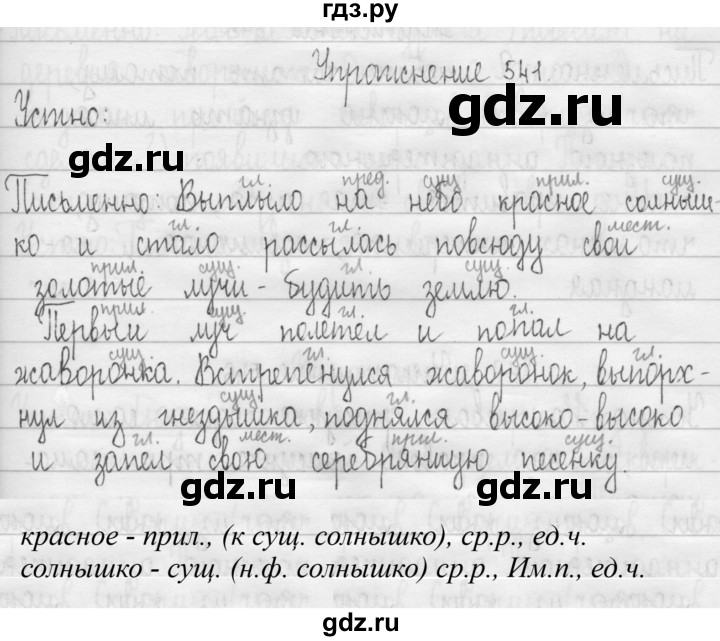 гдз.ру
Упражнение 541
Устно:
gdz.ru
gdz.ru
гл. пред. сущ. прил. сущ.
Письменно: Выплыло на небо красное солныш-
гл. гл. мест.
ко и стало рассылась повсюду свои
прил. сущ. гл. сущ.
золотые лучи - будить землю.
прил. сущ. гл. гл.
Первый луч полетел и попал на
сущ. гл. сущ. гл.
жаворонка. Встрепенулся жаворонок, выпорх-
сущ. гл.
нул из гнездышка, поднялся высоко-высоко
гл. мест. прил. сущ.
и запел свою серебрянную песенку.
gdz.ru
gdz.ru
красное - прил., (к сущ. солнышко), ср.р., ед.ч.
солнышко - сущ. (н.ф. солнышко) ср.р., Им.п., ед.ч.